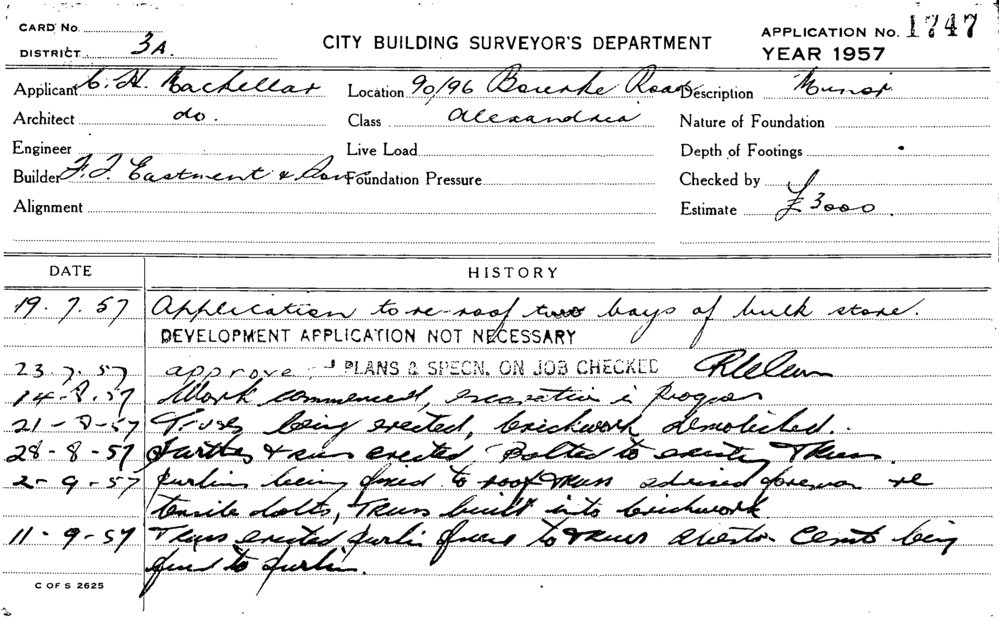 CARD No.
DISTRICT 3A.
CITY BUILDING SURVEYOR'S DEPARTMENT
APPLICATION No. 1747
YEAR 1957
Applicant C. H. Mackellar Location 90/96 Bourke Road Description Minor
Architect do. Class Alexandria Nature of Foundation
Engineer Live Load Depth of Footings
Builder F. J. Eastment & Sons Foundation Pressure Checked by
Alignment Estimate £3000.
DATE HISTORY
19.7.57 Application to re-roof two bays of bulk store.
DEVELOPMENT APPLICATION NOT NECESSARY
23.7.57 approve PLANS & SPECN. ON JOB CHECKED
14-8-57 Work commenced, excavation in progress
21-8-57 Truss being erected, brickwork demolished.
28-8-57 Further truss erected Bolted to existing truss.
2-9-57 Purlins being fixed to roof truss advised foreman re
bolts, truss built into brickwork
11-9-57 Truss erected purlin fixed to truss cement being
fixed to purlin.
C OF S 2625